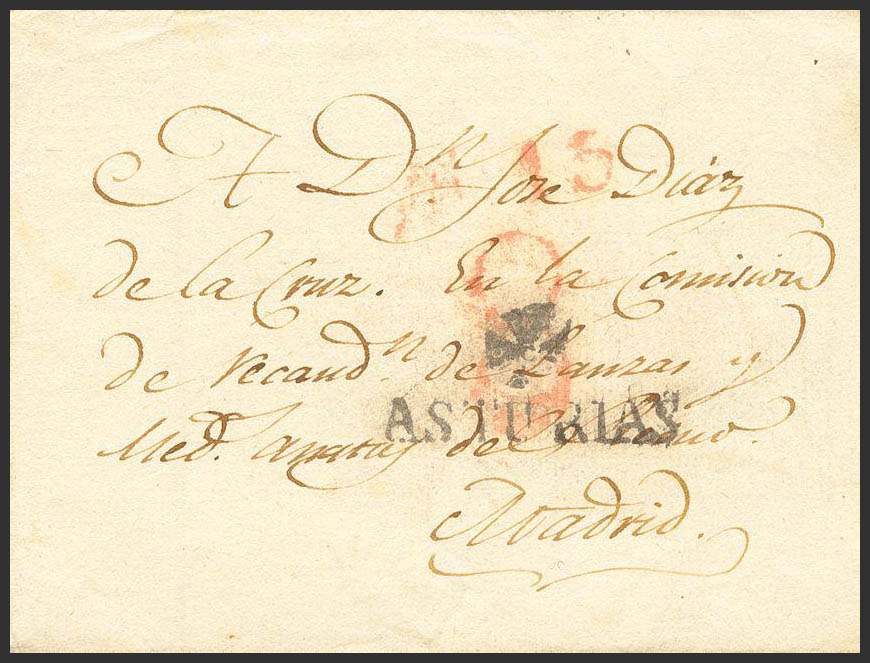 A Dn Jose Diaz
de la Cruz. En la Comision
de recaudn. de Lanzas y
Med. Anatas del Reino.
ASTURIAS
Madrid.